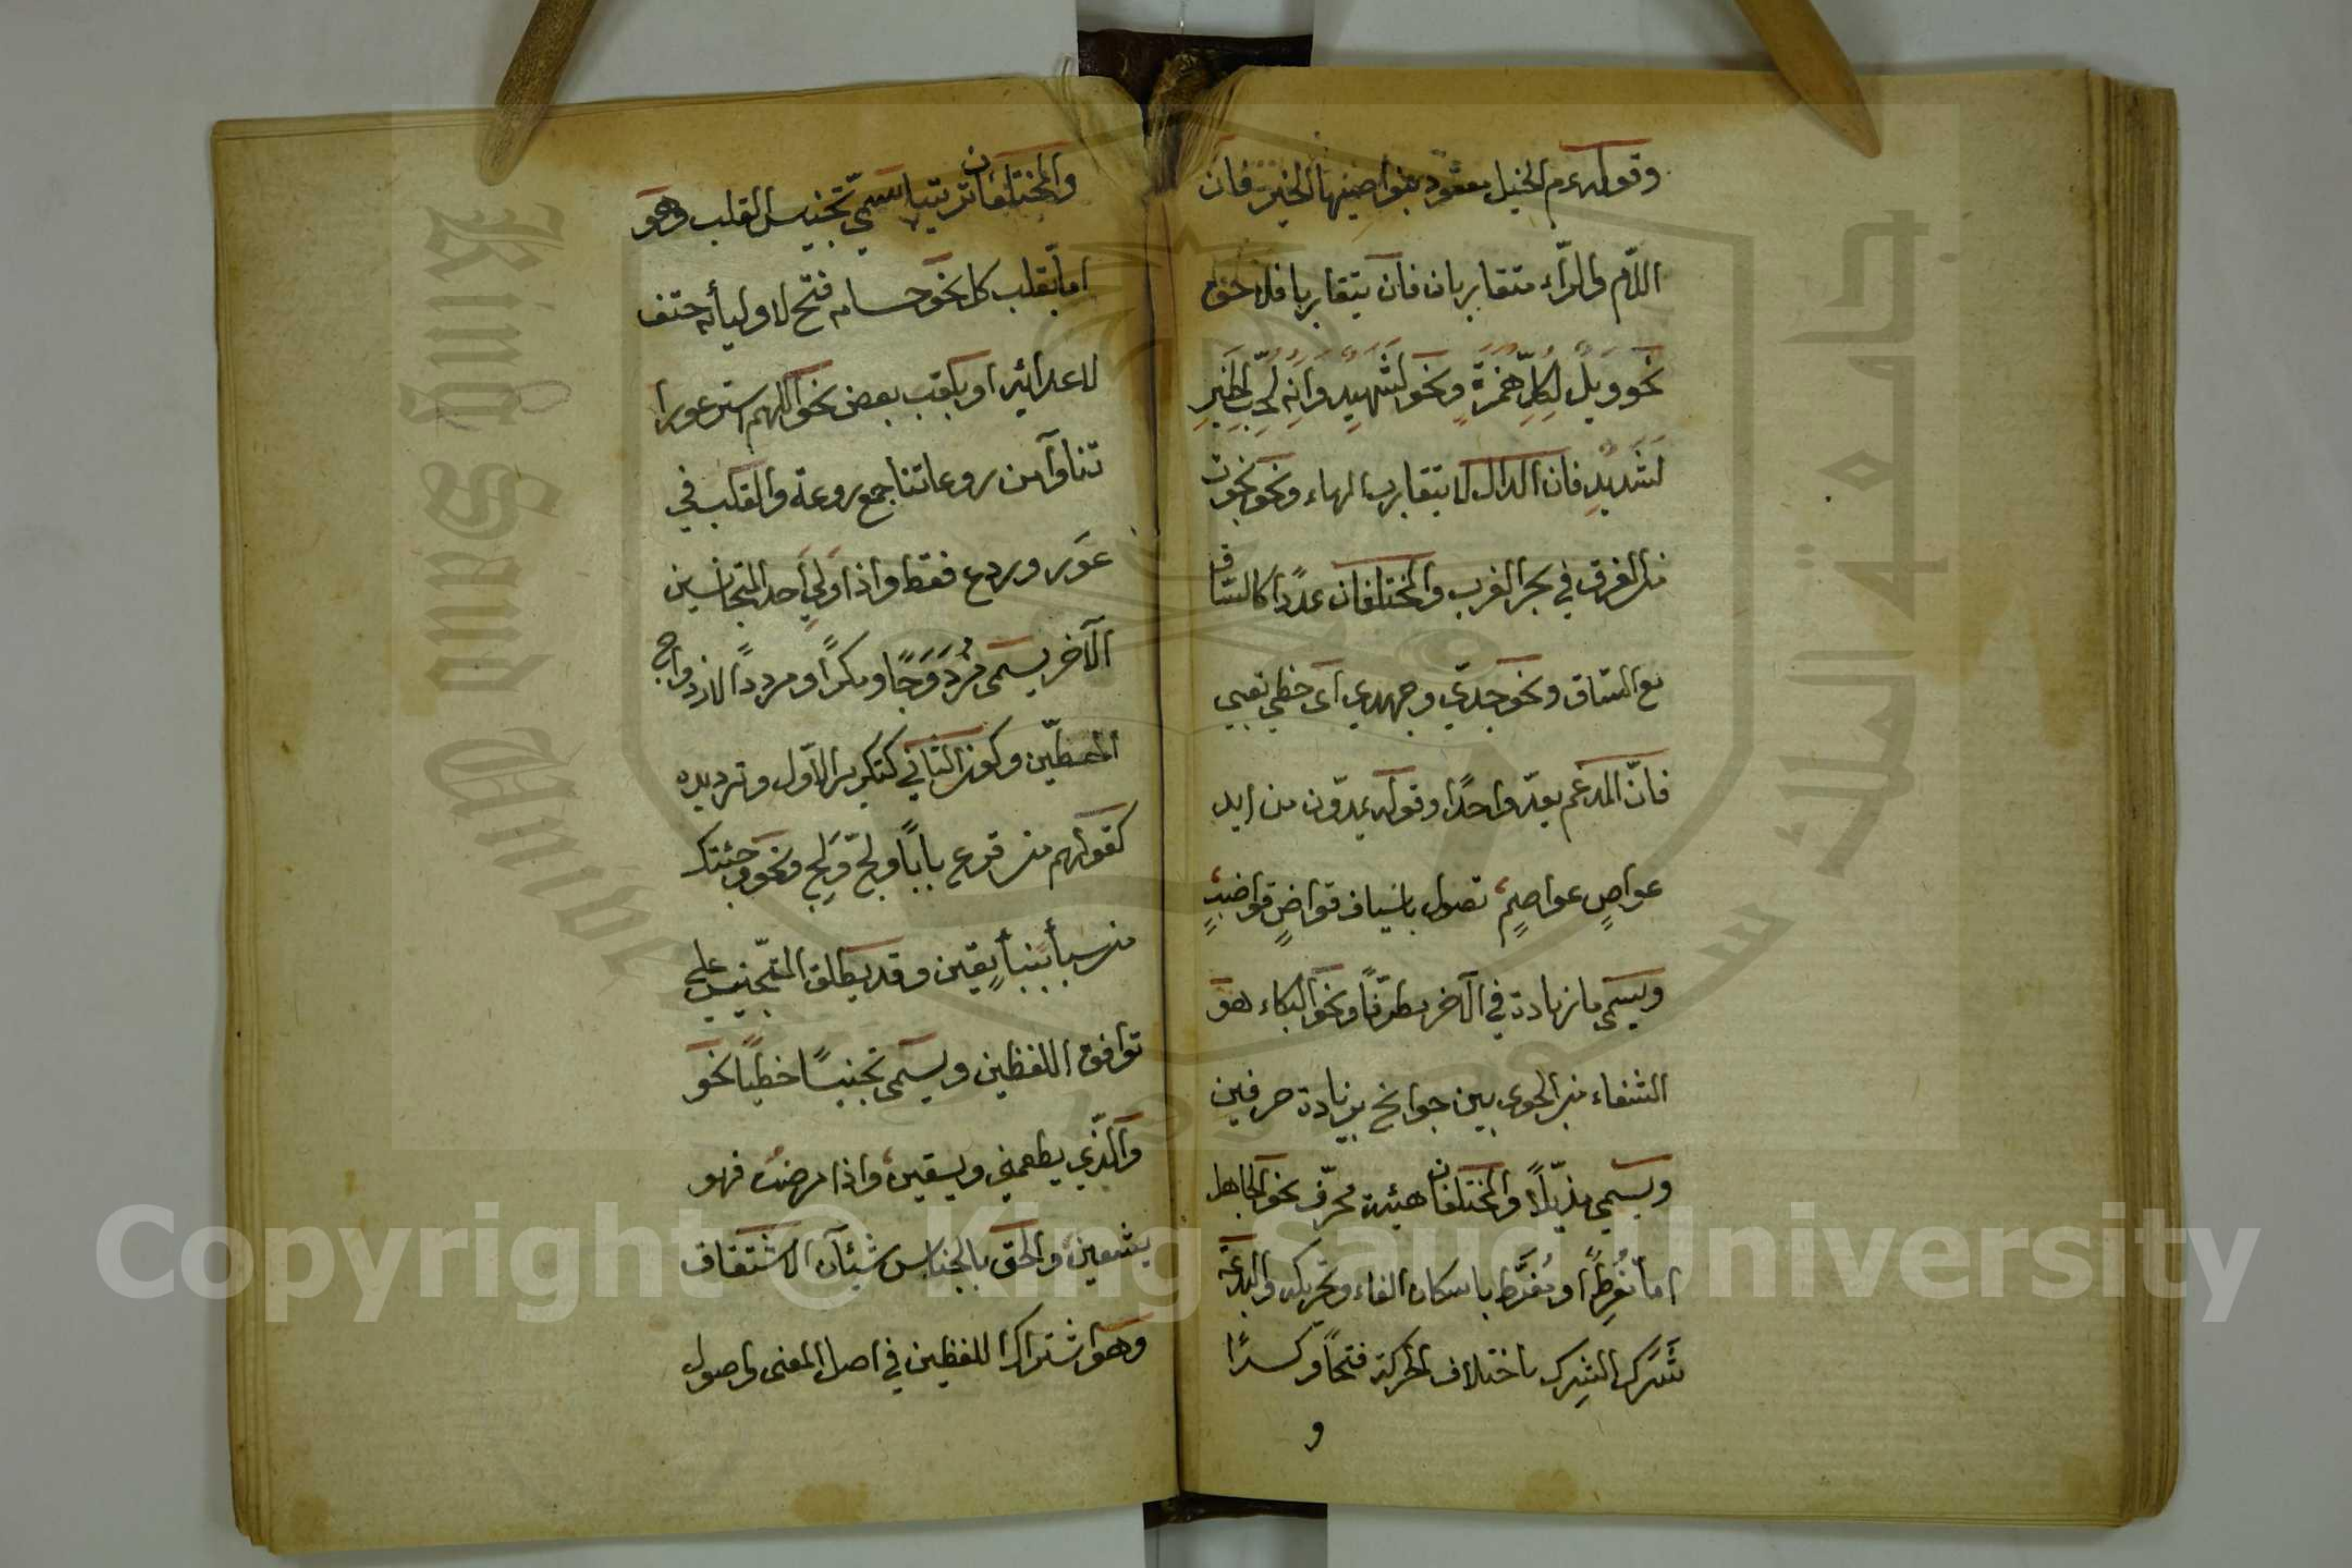 وقوله عم الخيل معقود بنواصيها الخير فان
اللام والراء متقاربان فان يتقاربا فلاحق
نحو ويل لكل همزة ونحو لشهيد وانه لحب الخير
لشديد فان الدال لا يتقارب الهاء ونحو نجوت
من الغرق في بحر الغرب والمختلفان عددا كالساق
مع المساق ونحو جدي وجهدي اى حظي تعبي
فان المدغم يعد واحدا وقوله يمدون من ايد
عواص عواصم تصول باسياف قواض قواضب
ويسمى ما زيادة في الآخر مطرفا ونحو البكاء هو
الشفاء من الجوى بين جوانح بزيادة حرفين
ويسمى مذيلا والمختلفان هيئة محرف نحو الجاهل
اما مفرط او مفرط باسكان الفاء وتحريكه والبدعة
شرك الشرك باختلاف الحركة فتحا وكسرا
و
والمختلفان ترتيبا يسمى تجنيس القلب وهو
اما بقلب كل نحو حسامه فتح لاوليائه حتف
لاعدائه او بقلب بعض نحو اللهم استر عورا
تنا وآمن روعاتنا جمع روعة والقلب في
عور وروع فقط واذا ولي احد المتجانسين
الآخر يسمى مزدوجا ومكررا ومرددا لازدواج
اللفظين وكون الثاني كتكرير الاول وترديده
كقولهم من قرع بابا ولج ولج ونحو وجئتك
من سبأ بنبأ يقين وقد يطلق التجنيس على
توافق اللفظين ويسمى تجنيسا خطيا نحو
والذي يطعمني ويسقين واذا مرضت فهو
يشفين والحق بالجناس شيئان الاشتقاق
وهو اشتراك اللفظين في اصل المعنى واصول
Copyright © King Saud University
King Saud Unive
جامعة الملك سعود